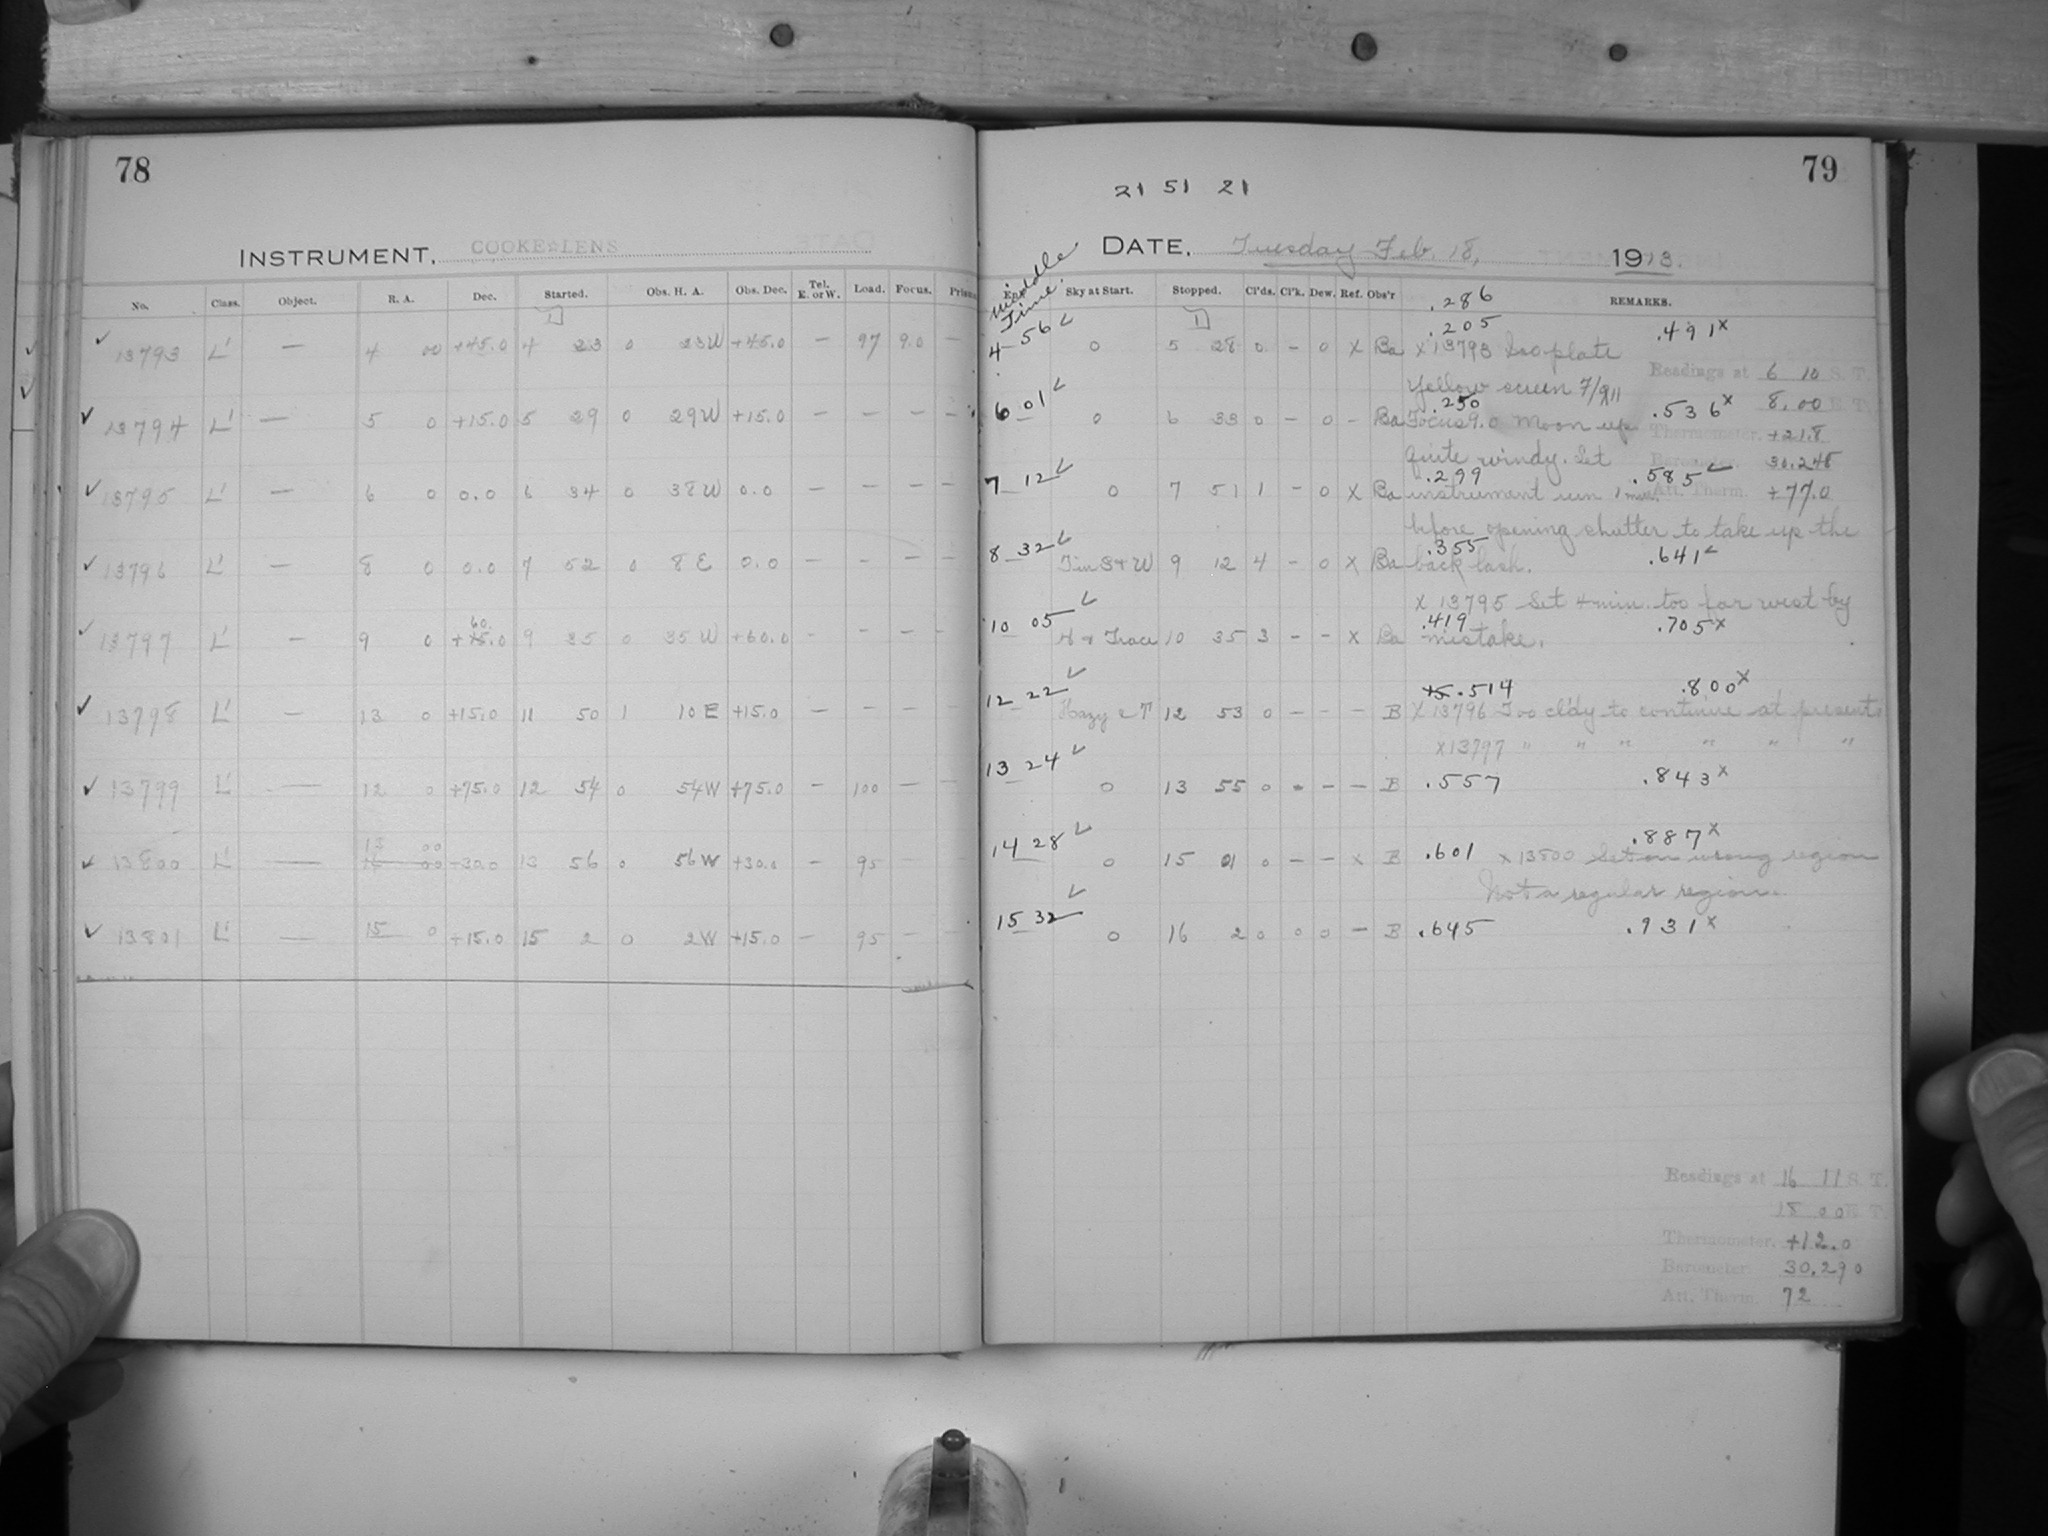 78
INSTRUMENT. COOKE LENS
No. Class. Object. R. A. Dec. Started. Obs. H. A. Obs. Dec. Tel. E. or W. Load. Focus.
13793 L' — 4 00 +45.0 4 23 0 23W +45.0 — 97 9.0 —
13794 L' — 5 0 +15.0 5 29 0 29W +15.0 — — — —
13795 L' — 6 0 0.0 6 34 0 38W 0.0 — — — —
13796 L' — 8 0 0.0 7 52 0 8E 0.0 — — — —
60.
13797 L' — 9 0 +15.0 9 35 0 35W +60.0 — — — —
13798 L' — 13 0 +15.0 11 50 1 10E +15.0 — — — —
13799 L' — 12 0 +75.0 12 54 0 54W +75.0 — 100 — —
13 00
13800 L' — 16 00 +30.0 13 56 0 56W +30.0 — 95
13801 L' — 15 0 +15.0 15 2 0 2W +15.0 — 95 — —
79
21 51 21
DATE. Tuesday Feb. 18, 1913.
Middle Time.
Sky at Start. Stopped. Cl'ds. Cl'k. Dew. Ref. Obs'r REMARKS.
.286
.205 .491x
4 56 0 5 28 0 — 0 X Ba x 13793 Iso plate
Readings at 6 10 S. T.
Yellow screen 7/9/11
.250 .536x 8.00 E. T.
6 01 0 6 33 0 — 0 — Ba Focus 9.0 Moon up
Thermometer. +21.8
quite windy. Set
Barometer. 30.248
.299 .585
7 12 0 7 51 1 — 0 X Ba instrument run 1 min.
Att. Therm. +77.0
before opening shutter to take up the
.355 .641
8 32 Tin S+W 9 12 4 — 0 X Ba back lash.
X 13795 Set 4 min. too far west by
.419 .705x
10 05 H & Trace 10 35 3 — — X Ba mistake.
.514 .800x
12 22 Hazy & T 12 53 0 — — — B X 13796 Too cl'dy to continue at present
x 13797 " " " " " "
13 24 0 13 55 0 — — — B .557 .843x
.887x
14 28 0 15 01 0 — — x B .601 x 13800 Set on wrong region
Not a regular region.
15 32 0 16 2 0 0 0 — B .645 .931x
Readings at 16 11 S. T.
18 00 E. T.
Thermometer. +12.0
Barometer. 30.290
Att. Therm. 72